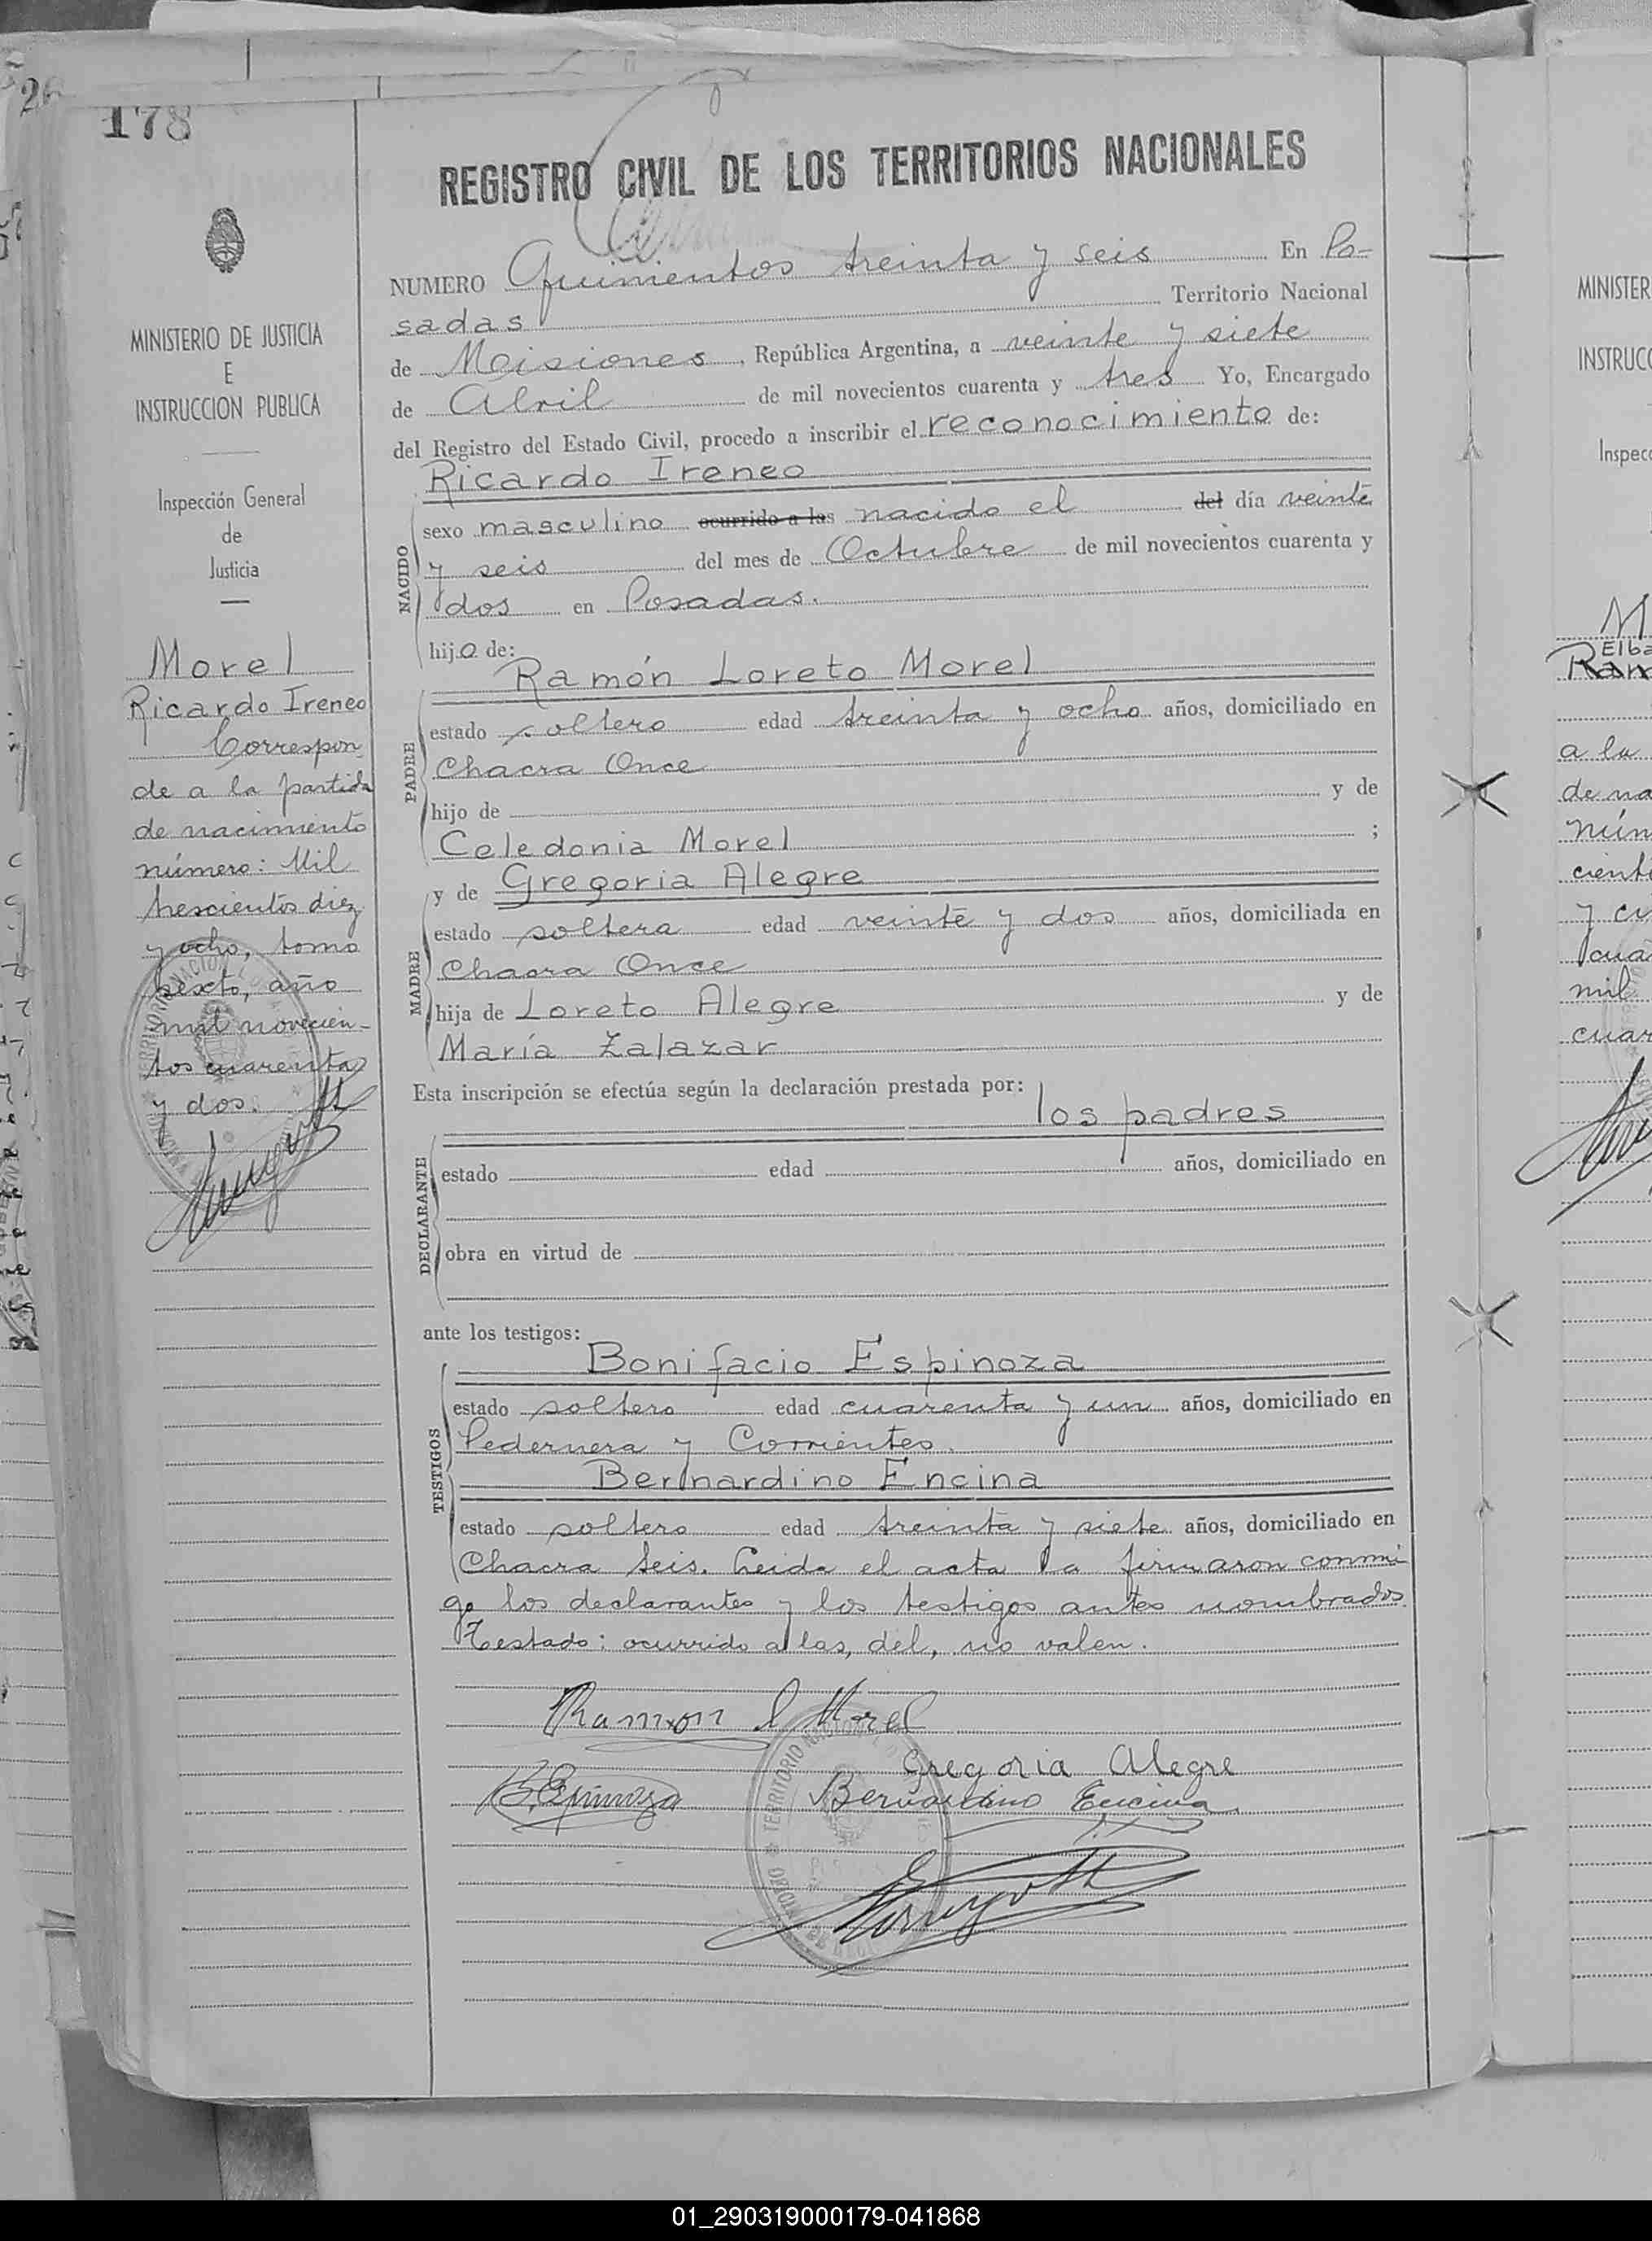 178
REGISTRO CIVIL DE LOS TERRITORIOS NACIONALES
MINISTERIO DE JUSTICIA
E
INSTRUCCION PUBLICA
Inspección General
de
Justicia
Morel
Ricardo Ireneo
Correspon
de a la partida
de nacimiento
número: Mil
trescientos diez
y ocho, tomo
sexto, año
mil novecien-
tos cuarenta
y dos.
NUMERO Quinientos treinta y seis En Po-
sadas Territorio Nacional
de Misiones, República Argentina, a veinte y siete
de Abril de mil novecientos cuarenta y tres Yo, Encargado
del Registro del Estado Civil, procedo a inscribir el reconocimiento de:
Ricardo Ireneo
NACIDO
sexo masculino ocurrido a las nacido el del día veinte
y seis del mes de Octubre de mil novecientos cuarenta y
dos en Posadas.
hijo de:
Ramón Loreto Morel
PADRE
estado soltero edad treinta y ocho años, domiciliado en
Chacra Once
hijo de y de
Celedonia Morel ;
y de Gregoria Alegre
MADRE
estado soltera edad veinte y dos años, domiciliada en
Chacra Once
hija de Loreto Alegre y de
María Zalazar
Esta inscripción se efectúa según la declaración prestada por:
los padres
DECLARANTE
estado edad años, domiciliado en
obra en virtud de
ante los testigos:
Bonifacio Espinoza
TESTIGOS
estado soltero edad cuarenta y un años, domiciliado en
Pedernera y Corrientes.
Bernardino Encina
estado soltero edad treinta y siete años, domiciliado en
Chacra seis. Leida el acta la firmaron conmi
go los declarantes y los testigos antes nombrados.
Testado: ocurrido a las, del, no valen.
Ramon L Morel
Gregoria Alegre
B. Espinoza Bernardino Encina
TERRITORIO NACIONAL
MINISTER
INSTRUCC
Inspecc
M
Elba
Ram
a la
de na
núm
cient
y cu
cua
mil
cuar
01_290319000179-041868